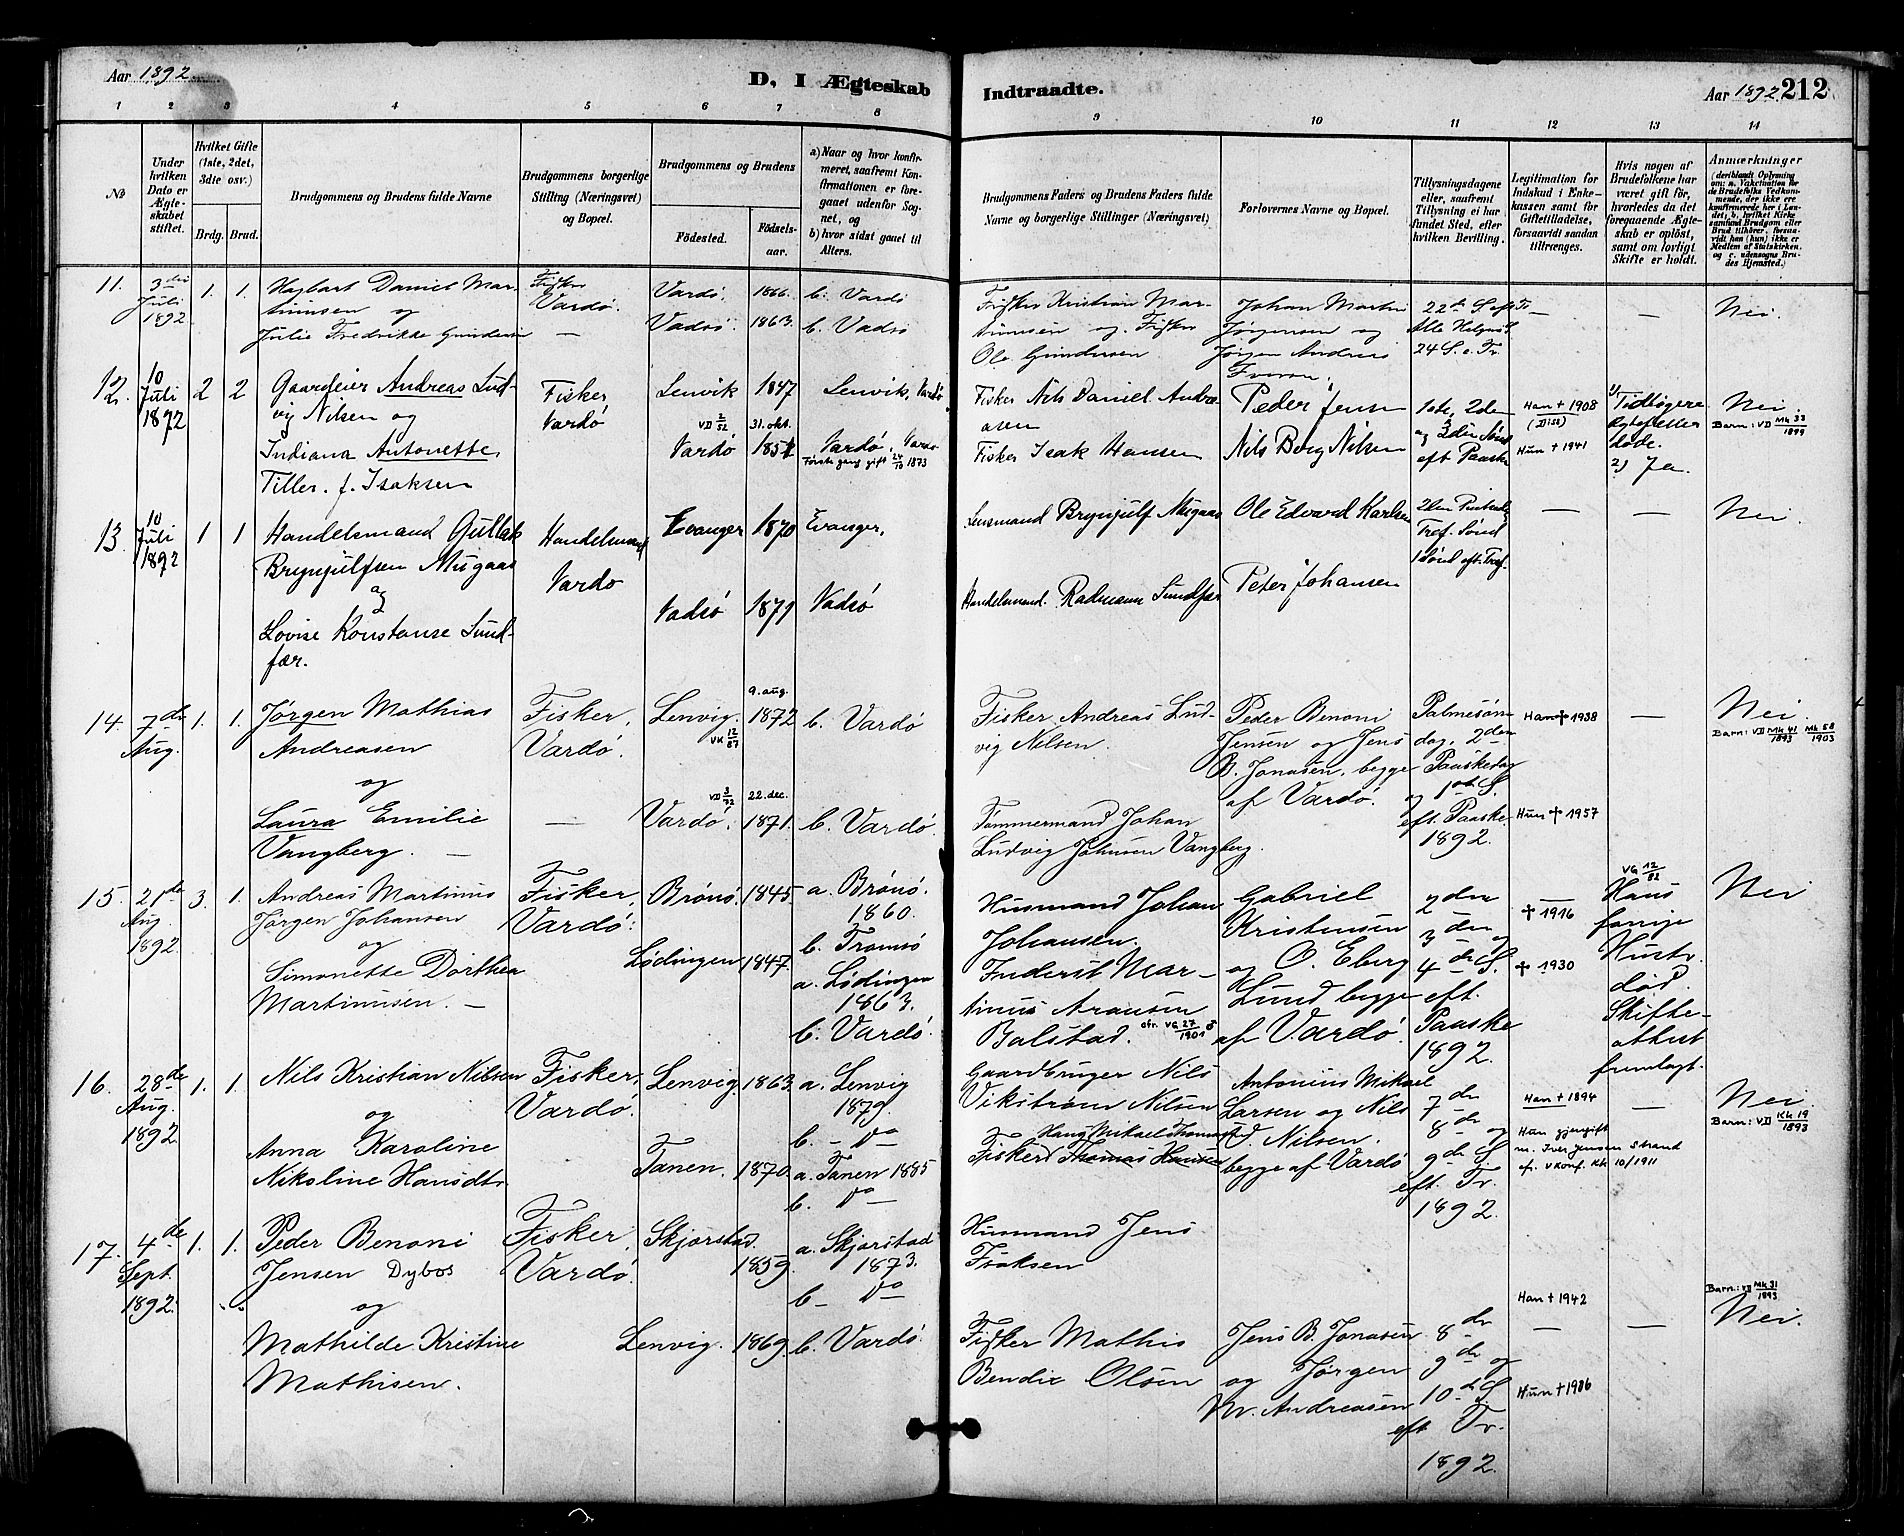 Aar 1892
D, I Ægteskab
Indtraadte.
Aar 1892 212
1 2 3 4 5 6 7 8 9 10 11 12 13 14
No
Under hvilken Dato er Ægteskabet stiftet.
Hvilket Gifte (1ste, 2det, 3die osv.)
Brdg. Brud.
Brudgommens og Brudens fulde Navne
Brudgommens borgerlige Stilling (Næringsvei) og Bopæl.
Brudgommens og Brudens
Fødested. Fødselsaar.
a) Naar og hvor konfirmeret, saafremt Konfirmationen er foregaaet udenfor Sognet, og
b) hvor sidst gaaet til Alters.
Brudgommens Faders og Brudens Faders fulde Navne og borgerlige Stillinger (Næringsvei)
Forlovernes Navne og Bopæl.
Tillysningsdagene eller, saafremt Tillysning ei har fundet Sted, efter hvilken Bevilling.
Legitimation for Indskud i Enkekassen samt for Giftetilladelse, forsaavidt saadan tiltrænges.
Hvis nogen af Brudefolkene har været gift før, hvorledes da det foregaaende Ægteskab er opløst, samt om lovligt Skifte er holdt.
Anmærkninger
11. 3die Juli 1892 1. 1.
Hagbart Daniel Martinusen og
Julie Fredrikke Gundersen
Fisker Vardø. —
Vardø. 1866. b. Vardø
Vadsø. 1863. b. Vadsø
Fisker Kristian Martinusen og Fisker
Ole Gundersen
Johan Martin
Jørgensen og
Jørgen Andreas
22de S. eft Tr.
Alle Helgens S.
24 S. e. Tr.
— — Nei.
12. 10 Juli 1892 2 2
Gaardeier Andreas Ludvig Nilsen og
Indiana Antonette
Tiller. f. Isaksen
Fisker
Vardø
Lenvik 1847 Lenvik, Vardø
VD 2/52 31. okt.
Vardø 1851 Vardø, Vardø
Første gang gift 24/10 1873
Fisker Nils Daniel Andreasen
Fisker Isak Hansen
Peder Jensen
Nils Berg Nilsen
1ste, 2den
og 3den Sønd
eft Paaske
Han † 1908
(Disc)
Hun † 1941
1) Tidligere
Ægtefeller
døde.
2) Ja.
Nei.
Barn: VD Mk 33/1899
13. 10 Juli 1892 1 1
Handelsmand Gullak
Brynjulfsen Mugaas
og
Lovise Konstanse Sundfær.
Handelsmand
Vardø
Evanger 1870 Evanger,
Vadsø 1871 Vadsø
Lensmand Brynjulf Mugaas
Handelsmand. Radmann Sundfær
Ole Edvard Karlsen
Peter Johansen
2den Pintsedag
Tref. Sønd
1 Sønd eft. Tref.
— — Nei.
14. 7de Aug. 1. 1.
Jørgen Mathias
Andreasen
og
Laura Emilie
Vangberg. —
Fisker,
Vardø.
—
9. aug.
Lenvig. 1872 b. Vardø
VK 12/87
VD 3/72 22. dec.
Vardø. 1871. b. Vardø.
Fisker Andreas Ludvig Nelsen.
Tømmermand Johan
Ludvig Johnsen Vangberg.
Peder Benoni
Jensen og Jens
B. Jonasen, begge
af Vardø.
Palmesøndag, 2den
Paaskedag
og 1ste S.
eft. Paaske.
1892.
Han † 1938
Hun † 1957
—
Nei.
Barn: VD Mk 41/1893 Mk 58/1903
15. 21de Aug. 1892 3. 1.
Andreas Martinus
Jørgen Johansen
og
Simonette Dorthea
Martinusen. —
Fisker,
Vardø.
Brønø. 1845 a. Brønø.
1860.
b. Tromsø
Lødingen 1847. a. Lødingen
1863.
b. Vardø.
Husmand Johan
Johansen.
Inderst Martinus Aronsen
Balstad. cfr. VG 27/1901
Gabriel
Kristensen
og O. Eberg
Lund begge
af Vardø.
2den
3den og
4de S.
eft.
Paaske
1892.
—
† 1916
† 1930
VG 12/82
Hans
forrige
Hustr.
død.
Skifteattest
fremlagt.
Nei
16. 28de Aug. 1892 1. 1.
Nils Kristian Nilsen
og
Anna Karoline
Nikoline Hansdtr
Fisker,
Vardø.
Lenvig. 1863. a. Lenvig
1879.
b. — Do
Tanen. 1870. a. Tanen 1885
b. Do
Gaardbruger Nils
Vikstrøm Nilsen
Hans Mikael Thomas
Fisker Thomas Hansen
Antonius Mikael
Larsen og Nils
C. Nilsen.
begge af Vardø
7de
8de og
9de S
eft. Tr.
1892.
Han † 1894
Hun gjengift
m. Iver Jensen Strand
cf. V Konf. Kb 10/1911
—
Nei.
Barn: VD Kk 19/1893
17. 4de Sept. 1892. 1. 1.
Peder Benoni
Jensen Dybos
og
Mathilde Kristine
Mathisen.
Fisker,
Vardø.
Skjerstad. 1859. a. Skjerstad
1873.
b — Do
Lenvig. 1869. b. Vardø.
Husmand Jens
Isaksen
Fisker Mathis
Bendix Olsen
Jens B. Jonasen
og Jørgen
M. Andreasen
8de
9de og
10de S
eft. Tr.
1892.
Han † 1942
—
Hun † 1986
—
Barn: VD Mk 31/1893
Nei.